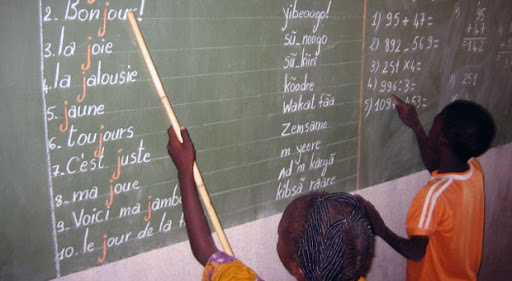 2. Bonjour!
3. la joie
4. la jalousie
5. jaune
6. toujours
7. C'est juste
8. ma joue
9. Voici ma
10. le jour de la
yibeoogo!
sũ_noogo
sũ_kiiri
kõodre
Wakat fãa
Zemsame
m yeere
Ad m kãrgã
kibsã rãare
1) 95 + 47 =
2) 892 _ 569 =
3) 251 x 4 =
4) 996 : 3 =
5) 109
95
+ 47
142
251